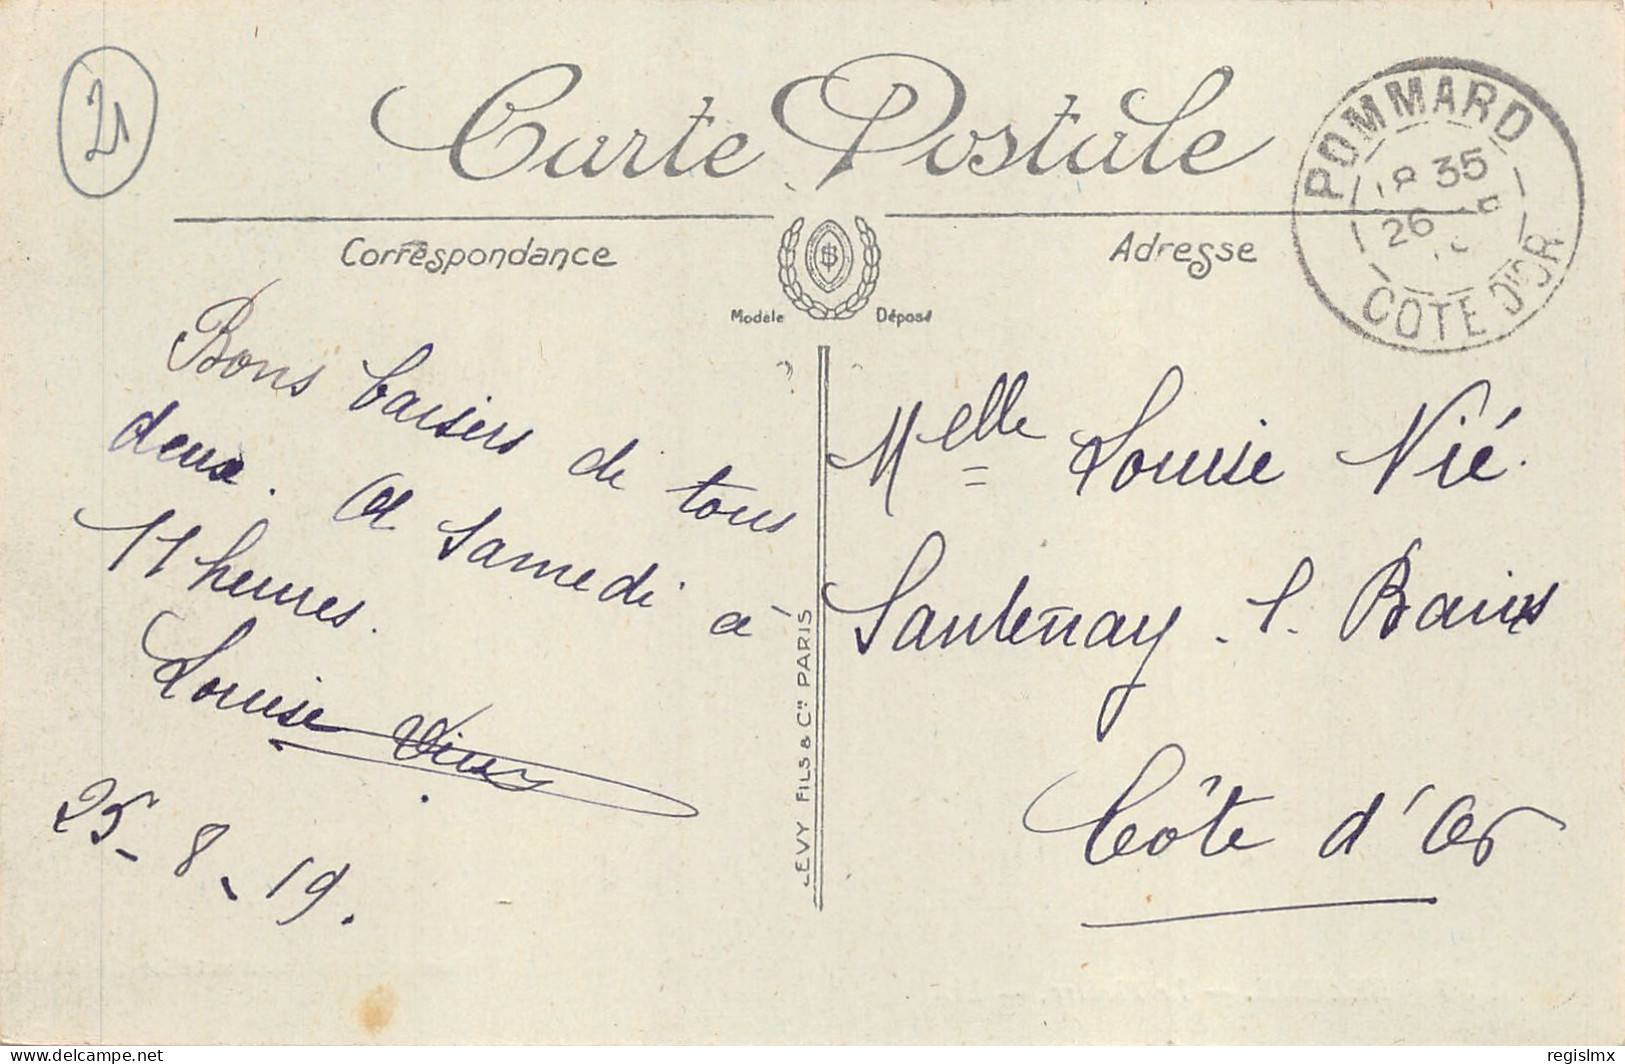 21
Carte Postale
POMMARD
18 35
26
COTE D'OR
Correspondance
Adresse
Modèle Déposé
Bons baisers de tous
deux. A samedi à
11 heures.
Louise
25-8-19.
LEVY FILS & Cie PARIS
Melle Louise Vié.
Santenay. l. Bains
Côte d'Or
delcampe.net
regislmx